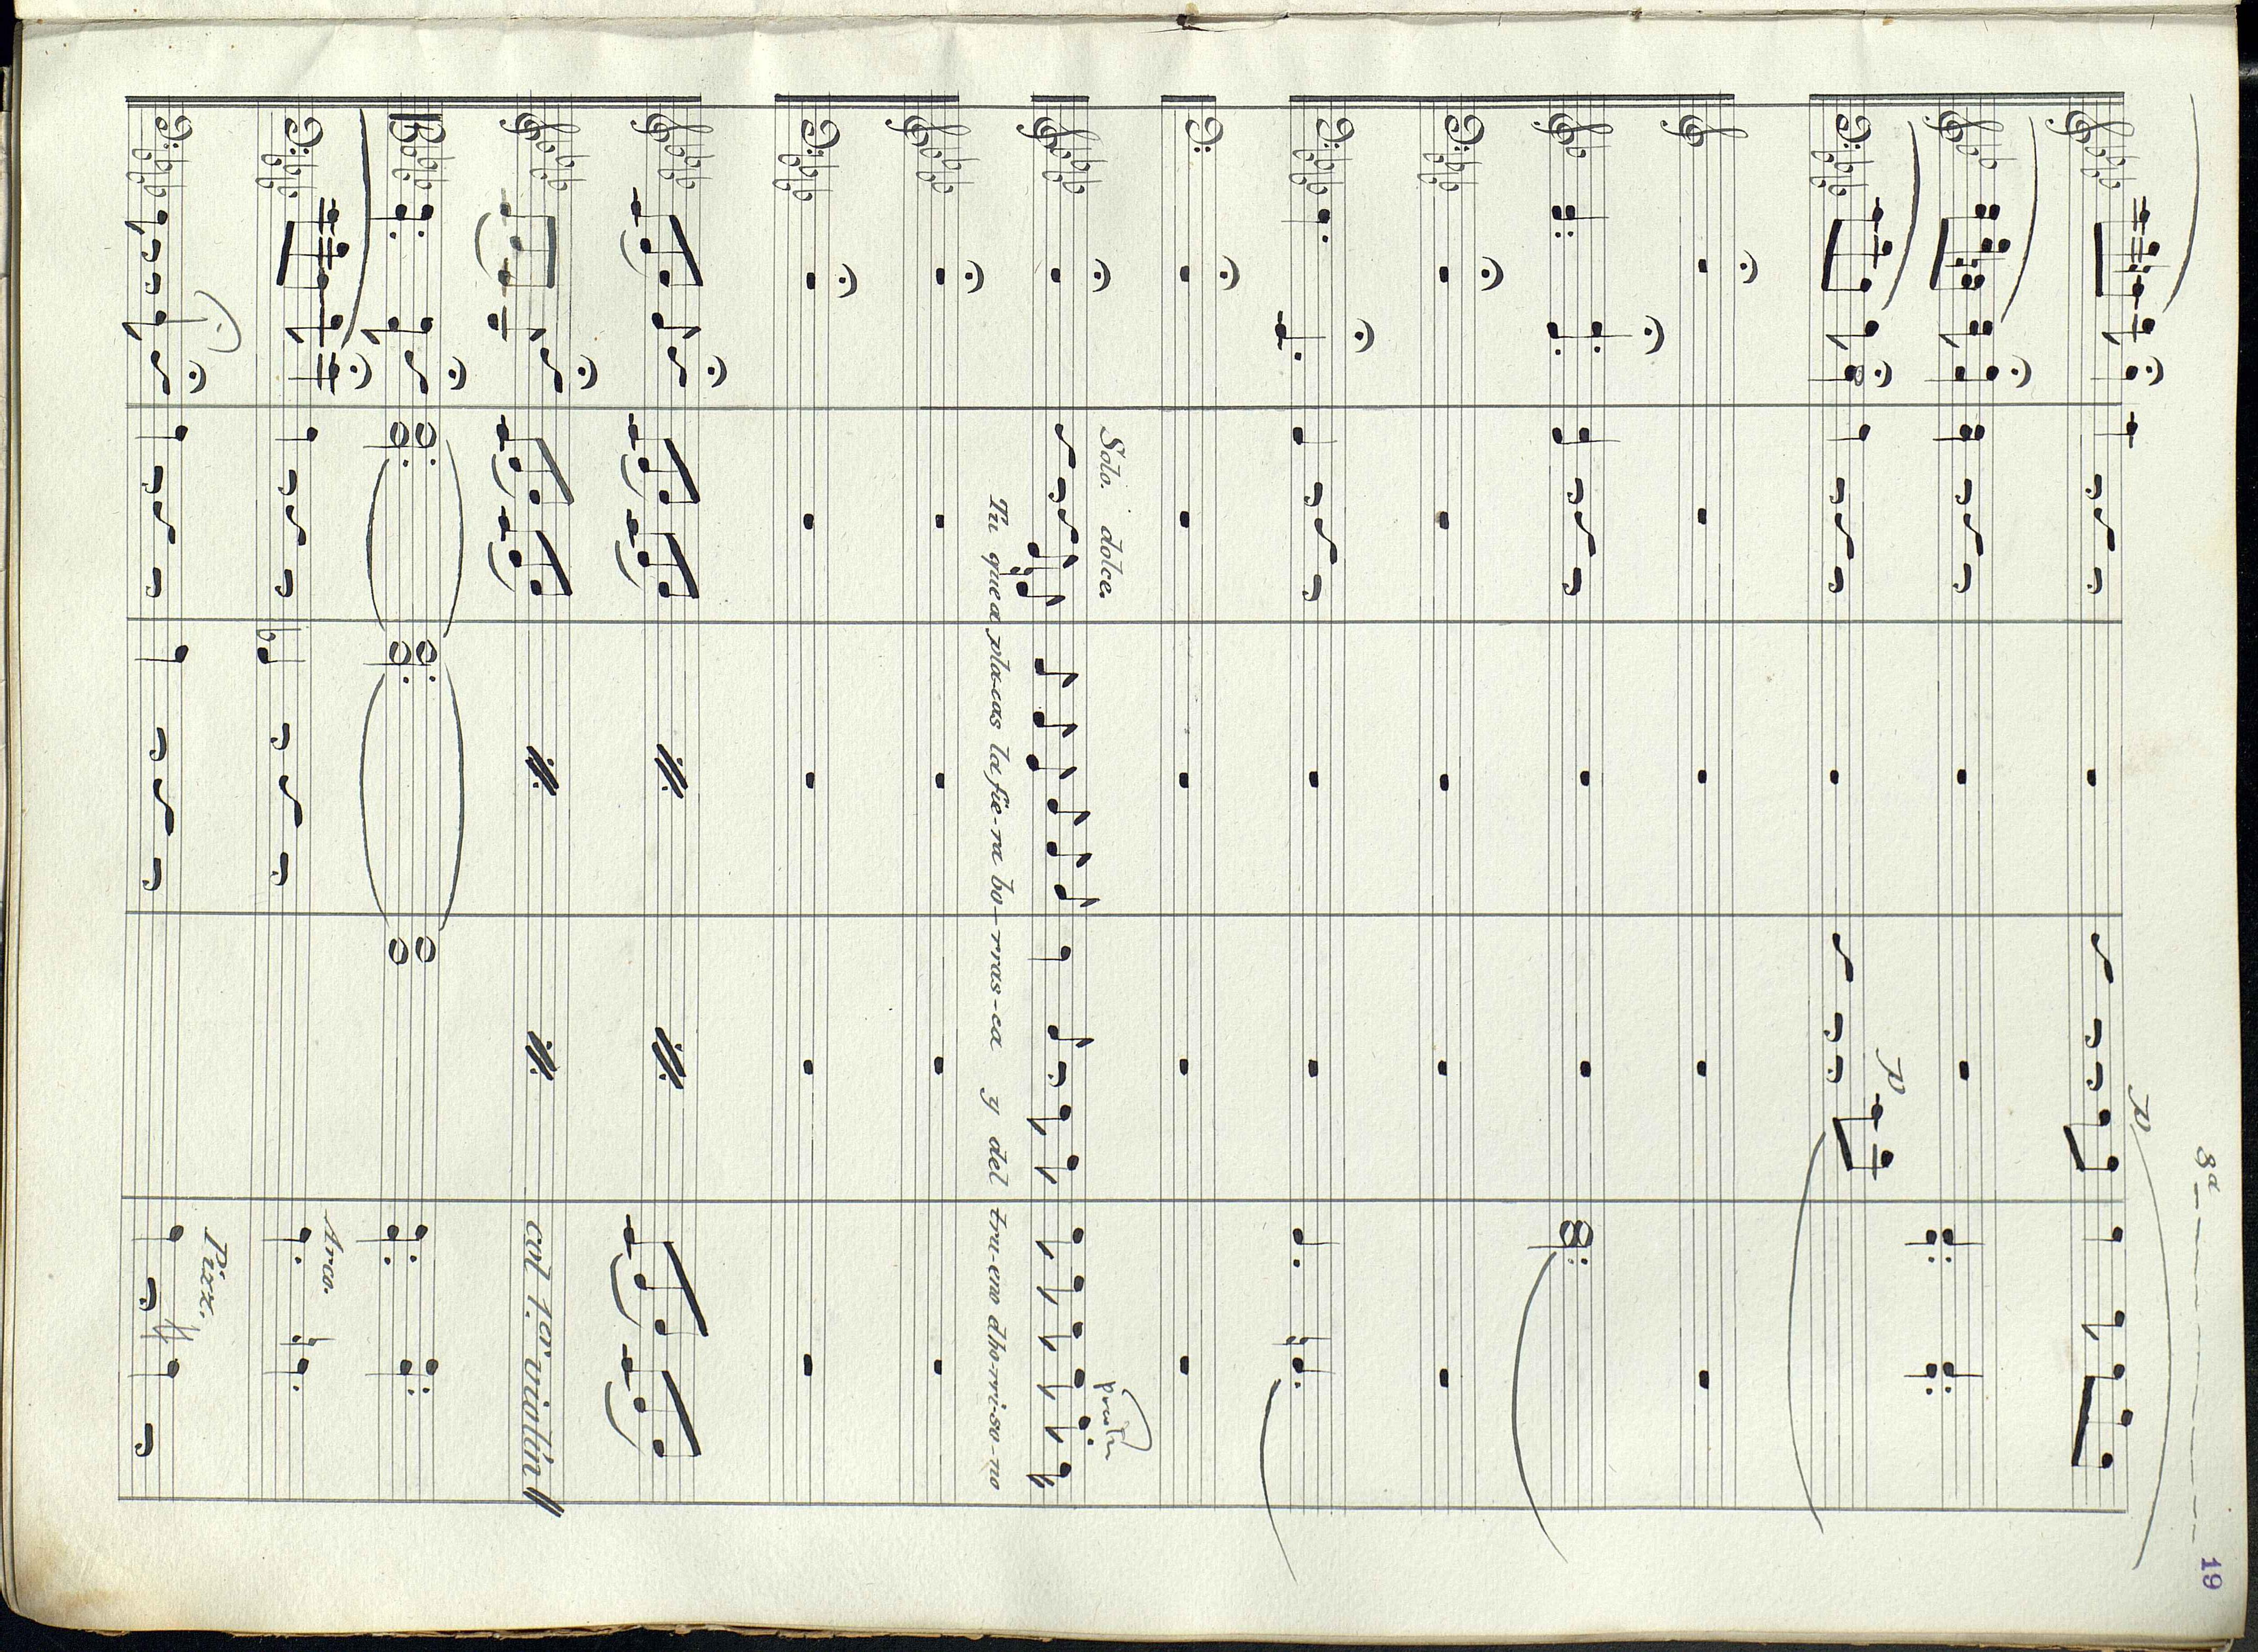 19
8ª
p
p
Solo. dolce.
Tu que a placas la fie-ra bo-rras-ca y del tru-eno dho-rri-so-no
col 1.er violin
Arco.
Pizz.